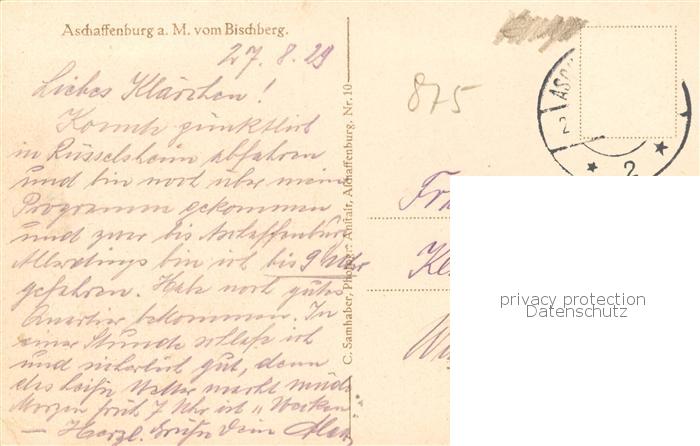 Aschaffenburg a. M. vom Bischberg.
27. 8. 29
Liebes Klärchen!
Konnte pünktlich
in Rüsselsheim abfahren
und bin noch über mein
Programm gekommen
und zwar bis Aschaffenburg
Allerdings bin ich bis 9 Uhr
gefahren. Habe noch gutes
Quartier bekommen. In
einer Stunde schlafe ich
und sicherlich gut, denn
das heiße Wetter macht müde
Morgen früh 7 Uhr ist „Wecken
— Herzl. Grüße Dein
C. Samhaber, Photogr. Anstalt, Aschaffenburg. Nr. 10
875
ASC
2
2
privacy protection
Datenschutz